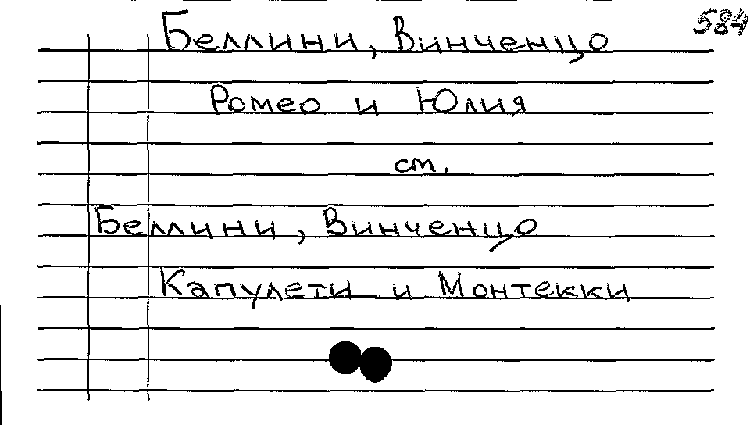 584
Беллини, Винченцо
Ромео и Юлия
ст.
Беллини, Винченцо
Капулети и Монтекки